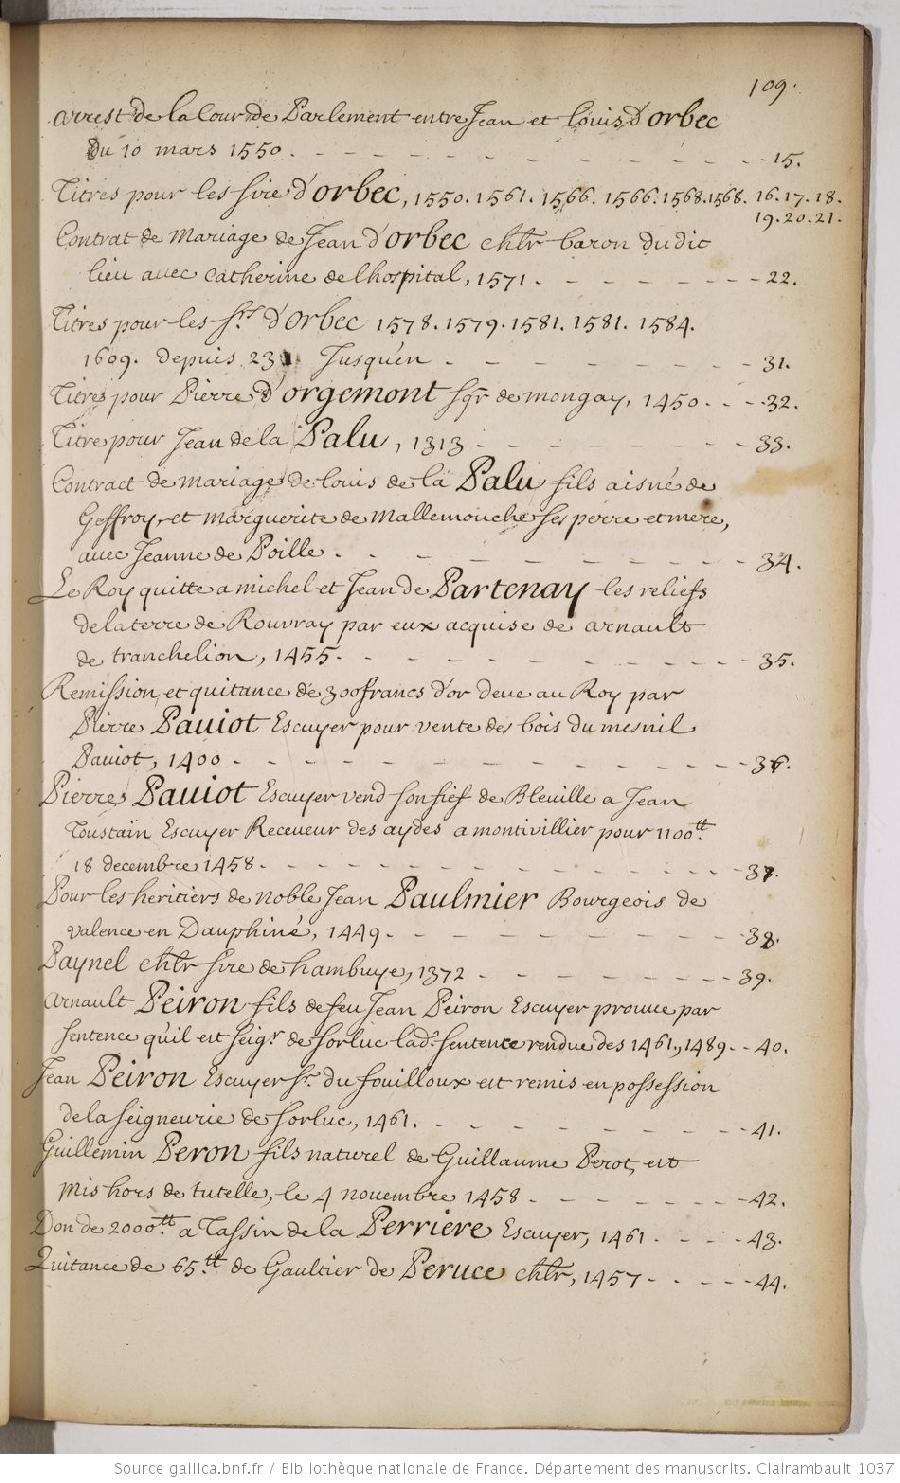 109.
Arrest de la Cour de Parlement entre Jean et Louis d'orbec
Du 10 mars 1550. - - - 15.
Titres pour les sire d'orbec, 1550. 1561. 1566. 1566. 1568. 1568. 16. 17. 18.
19. 20. 21.
Contrat de Mariage de Jean d'orbec chlr baron dudit
lieu avec Catherine de lhospital, 1571. - - - 22.
Titres pour les srs d'orbec 1578. 1579. 1581. 1581. 1584.
1609. depuis 23 Jusqu'en - - - 31.
Titres pour Pierre d'orgemont sgr de mongay, 1450. - - - 32.
Titre pour Jean de la Palu, 1313 - - - 33.
Contract de mariage de louis de la Palu fils aisné de
Geffroy, et marguerite de Mallemouche ses perre et mere,
avec Jeanne de Poille. - - - 34.
Le Roy quitte a michel et Jean de Partenay les reliefs
de la terre de Rouvray par eux acquise de arnault
de tranchelion, 1455. - - - 35.
Remission, et quitance de 300 francs d'or deue au Roy par
Pierre Pauiot Escuyer pour vente des bois du mesnil
Pauiot, 1400 - - - 36.
Pierre Pauiot Escuyer vend son fief de Bleuille a Jean
Toustain Escuyer Receueur des aydes a montivillier pour 1100tt.
18 decembre 1458. - - - 37.
Pour les heritiers de noble Jean Paulmier Bourgeois de
valence en Dauphiné, 1449 - - - 38.
Paynel chlr sire de hambuye, 1372 - - - 39.
Arnault Peiron fils de feu Jean Peiron Escuyer prouue par
sentence qu'il est seigr. de sorluc lad. sentence rendue des 1461, 1489 - - 40.
Jean Peiron Escuyer sr. du fouilloux est remis en possession
de la seigneurie de sorluc, 1461. - - - 41.
Guillemin Peron fils naturel de Guillaume Perot, est
mis hors de tutelle, le 4 novembre 1458 - - - 42.
Don de 2000tt. a Tassin de la Perriere Escuyer, 1461. - - - 43.
Quitance de 65.tt de Gaultier de Peruce chlr, 1457 - - - 44.
Source gallica.bnf.fr / Bibliothèque nationale de France. Département des manuscrits. Clairambault 1037